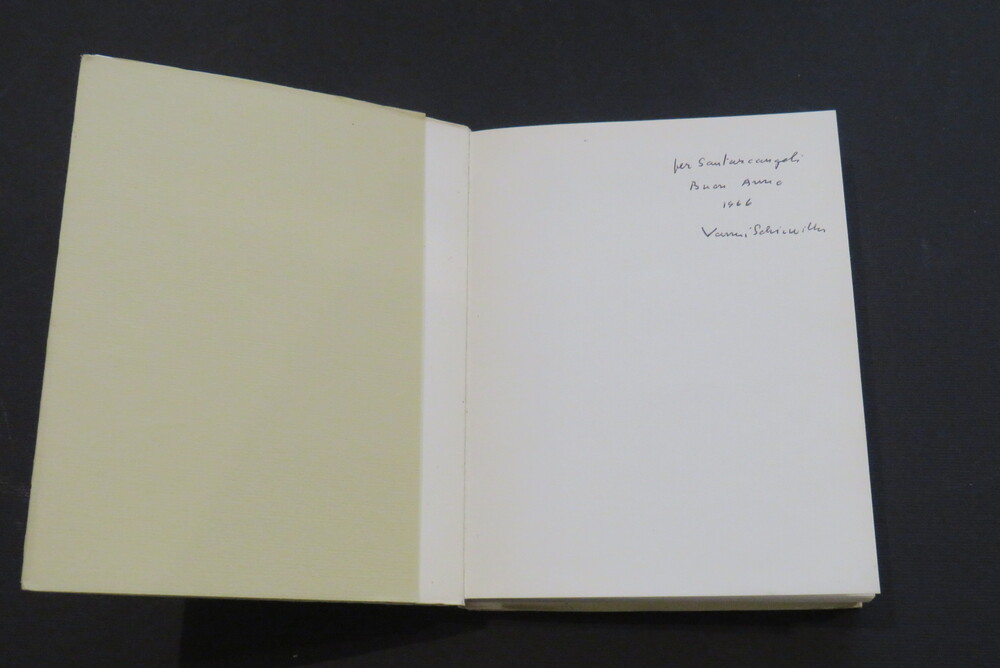 per Santarcangeli
Buon Anno
1966
Vanni Scheiwiller